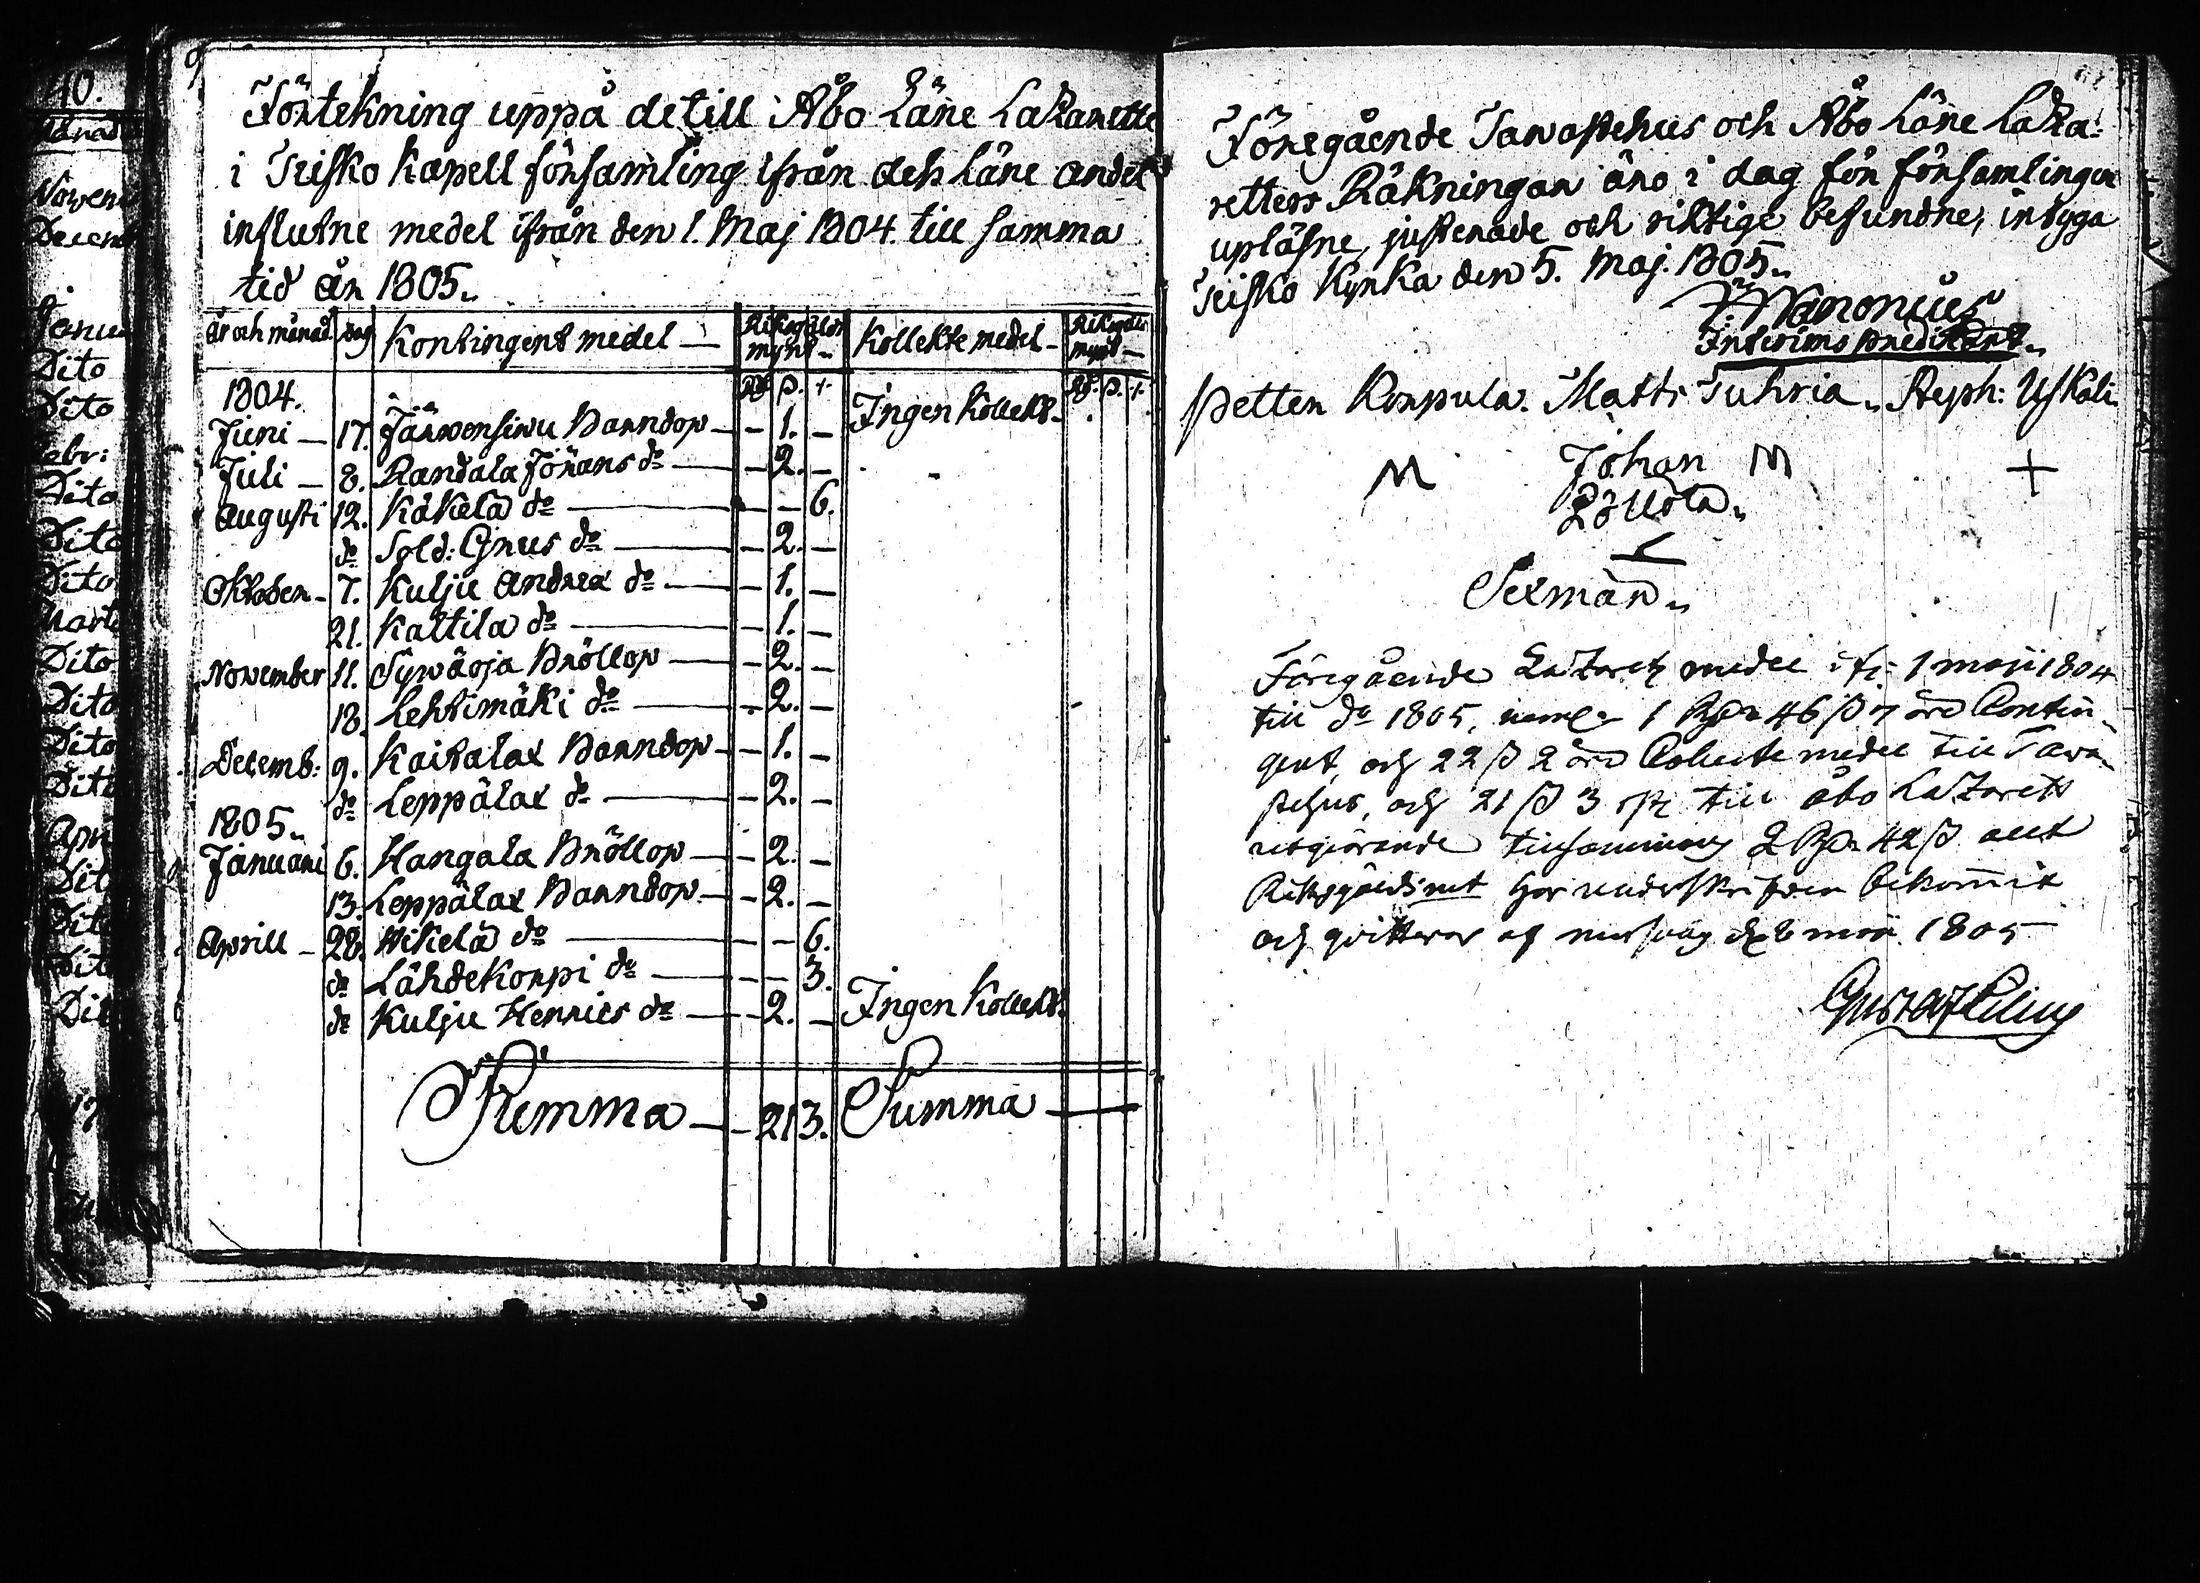 40.
Förtekning uppå de till Åbo Läne Lazarette
i Teisko Kapell församling ifrån deh Läne andel
influtne medel ifrån den 1. Maj 1804. till samma
tid år 1805.
År och månad dag Kontingent medel — Riksgälds mynt — Kollekte medel — Riksgälds mynt —
1804. Rd ß. r. Rd. ß. r.
Juni — 17. Järwensiwu Barndop — – 1. – Ingen Kollekt.
Juli — 8. Randala Jörans do — – 2. –
Augusti 12. Käkelä do — – – 6.
do Sold: Gnus do — – 2. –
Oktober – 7. Kulju Andrex do — – 1. –
21. Kattila do — – 1. –
November 11. Sywäoja Bröllop — – 2. –
18. Lehtimäki do — – 2. –
Decemb: 9. Kaitalax Barndop — – 1. –
do Leppälax do — – 2. –
1805.
Januari 6. Hangala Bröllop — – 2. –
13. Leppälax Barndop — – 2. –
Aprill — 28. Wikelä do — – – 6.
do Lähdekorpi do — – – 3.
do Kulju Henrics do — – 2. – Ingen Kollekt.
Summa — – 21 3. Summa —
Föregående Tawastehus och Åbo Läne Laza-
retters Räkningar äro i dag för församlingen
upläsne, justerade och riktige befundne, intyga
Teisko Kyrka den 5. Maj. 1805.
Wanonius
Interims predikant.
Petter Korpula. Matts Tuhria. Steph: Uskali
M Johan M +
Löllötä.
Sexmän.
Föregående Lazaretz medel ifr. 1 maji 1804
till do 1805, neml. 1 Rdr 46 ß 7 öre Contin-
gent, och 22 ß 2 öre Collecte medel till Tawa-
stehus, och 21 ß 3 till åbo Lazarett
utgiörande tilsammans 2 Rdr 42 ß allt
Riksgäldsmt har underskrifven bekommit
och qvitteras af 1805
Gustaf